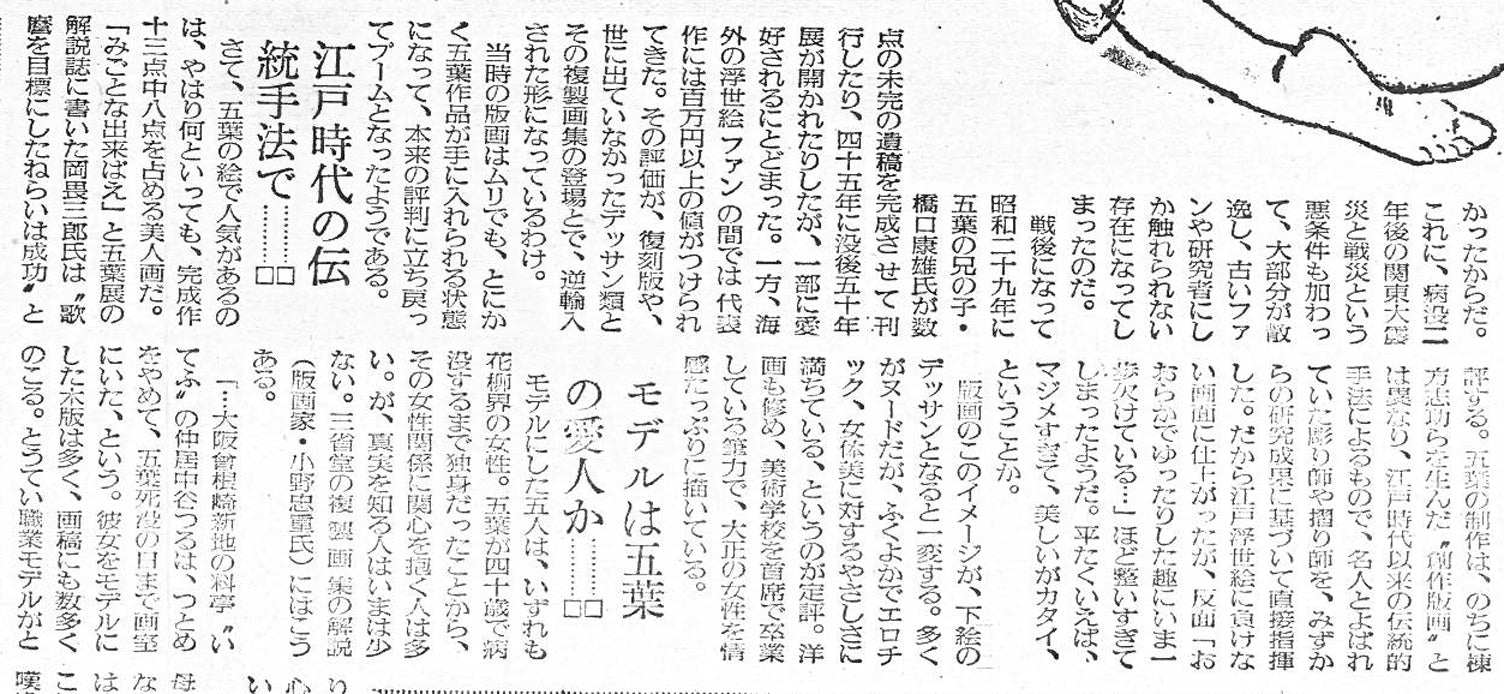 かったからだ。
これに、病没二
年後の関東大震
災と戦災という
悪条件も加わっ
て、大部分が散
逸し、古いファ
ンや研究者にし
か触れられない
存在になってし
まったのだ。
戦後になって
昭和二十九年に
五葉の兄の子・
橋口康雄氏が数
点の未完の遺稿を完成させて刊
行したり、四十五年に没後五十年
展が開かれたりしたが、一部に愛
好されるにとどまった。一方、海
外の浮世絵ファンの間では代表
作には百万円以上の値がつけられ
てきた。その評価が、復刻版や、
世に出ていなかったデッサン類と
その複製画集の登場とで、逆輸入
された形になっているわけ。
当時の版画はムリでも、とにか
く五葉作品が手に入れられる状態
になって、本来の評判に立ち戻っ
てブームとなったようである。
江戸時代の伝
統手法で………□□
さて、五葉の絵で人気があるの
は、やはり何といっても、完成作
十三点中八点を占める美人画だ。
「みごとな出来ばえ」と五葉展の
解説誌に書いた岡畏三郎氏は〝歌
麿を目標にしたねらいは成功〟と
評する。五葉の制作は、のちに棟
方志功らを生んだ〝創作版画〟と
は異なり、江戸時代以来の伝統的
手法によるもので、名人とよばれ
ていた彫り師や摺り師を、みずか
らの研究成果に基づいて直接指揮
した。だから江戸浮世絵に負けな
い画面に仕上がったが、反面「お
おらかでゆったりした趣にいま一
歩欠けている…」ほど整いすぎて
しまったようだ。平たくいえば、
マジメすぎて、美しいがカタイ、
ということか。
版画のこのイメージが、下絵の
デッサンとなると一変する。多く
がヌードだが、ふくよかでエロチ
ック、女体美に対するやさしさに
満ちている、というのが定評。洋
画も修め、美術学校を首席で卒業
している筆力で、大正の女性を情
感たっぷりに描いている。
モデルは五葉
の愛人か………□□
モデルにした五人は、いずれも
花柳界の女性。五葉が四十歳で病
没するまで独身だったことから、
その女性関係に関心を抱く人は多
い。が、真実を知る人はいまは少
ない。三省堂の複製画集の解説
（版画家・小野忠重氏）にはこう
ある。
「…大阪曾根崎新地の料亭〝い
てふ〟の仲居中谷つるは、つとめ
をやめて、五葉死没の日まで画室
にいた、という。彼女をモデルに
した木版は多く、画稿にも数多く
のこる。とうてい職業モデルがと